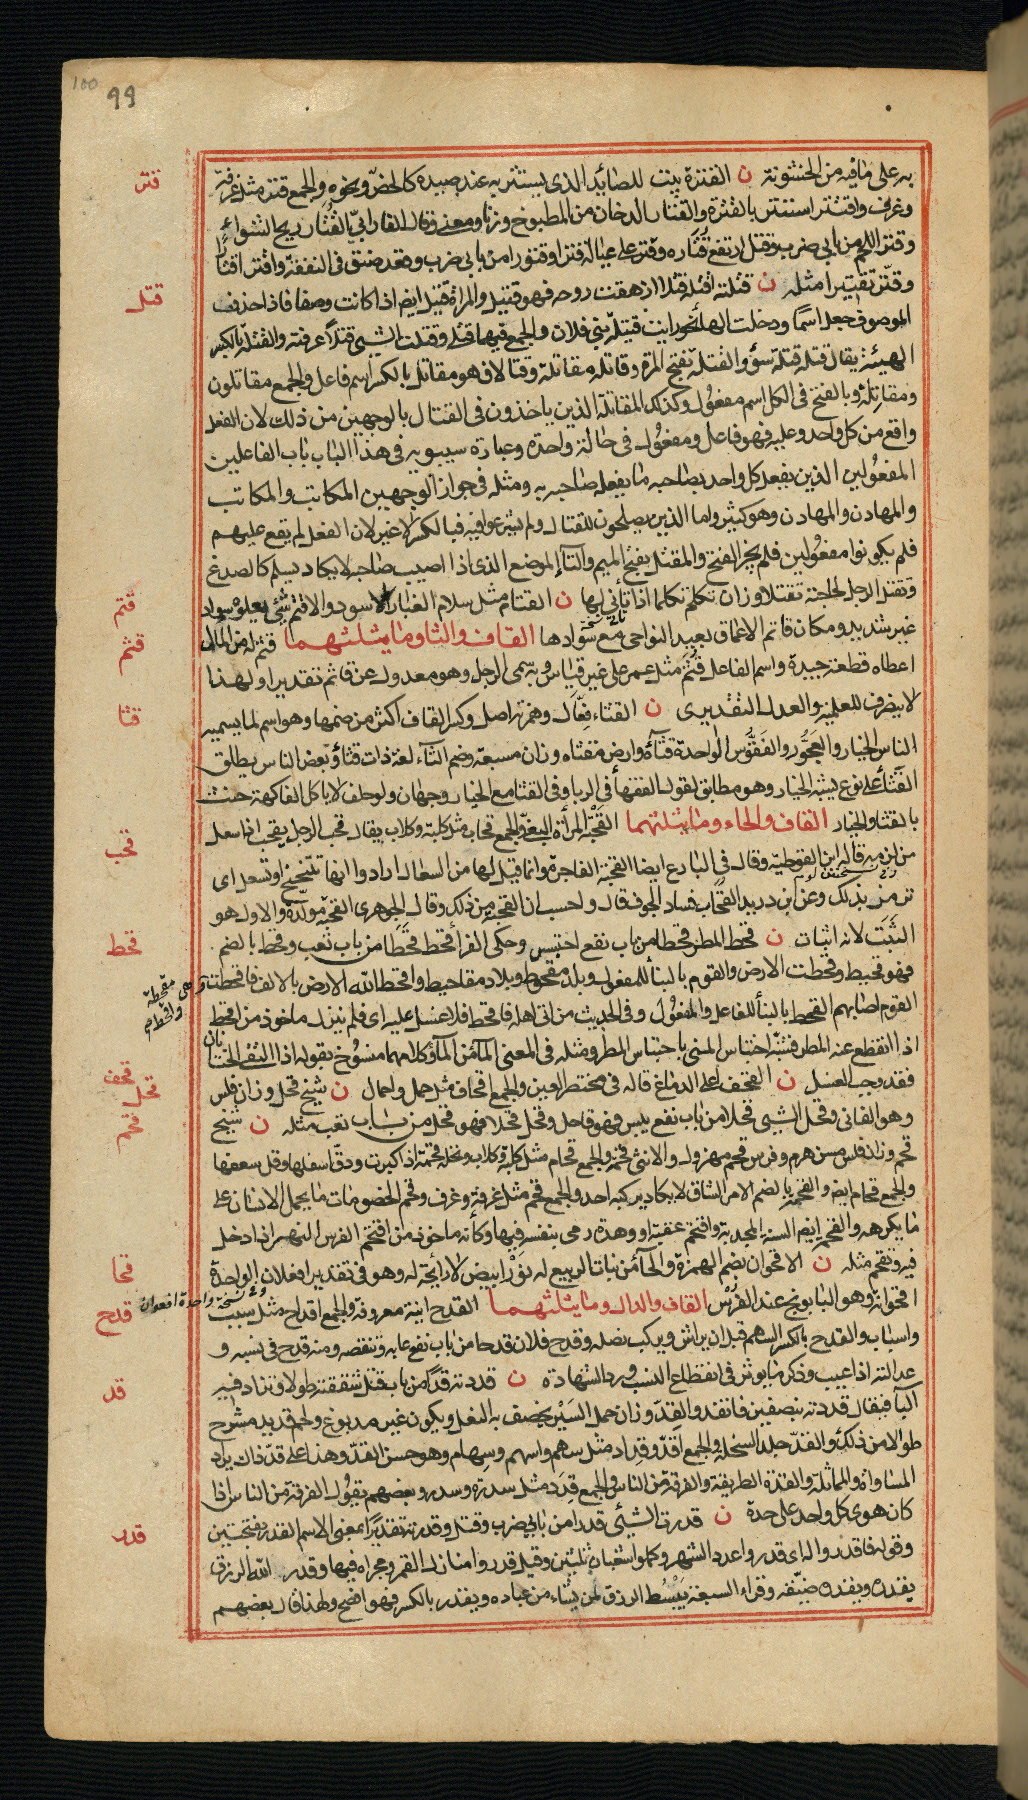 99
100
به على مافيه من الخشونة ن القترة بيت للصائد الذى يستتر به عند صيده كالخص ونحوه والجمع قتر مثل غرفة
وغرف واقتتر استتر بالقترة والقتار الدخان من المطبوخ وزنا ومعنى وقال الفارابى القتار ريح الشواء
وقتر اللحم من بابى ضرب وقتل ارتفع قتاره وقتر على عياله قترا وقتورا من بابى ضرب وقعد ضيق فى النفقة واقتر اقتارا
وقتر تقتيرا مثله ن قتلته اقتله قتلا ازهقت روحه فهو قتيل والمراة قتيل ايضا اذا كانت وصفا فاذا حذف
الموصوف جعل اسما ودخلت الهاء نحو رايت قتيلة بنى فلان والجمع فيهما قتلى وقتلت الشيئ قتلا عرفته والقتلة بالكسر
الهيئة يقال قتله قتلة سوء والقتلة بفتح المرة وقاتله مقاتلة وقتالا فهو مقاتل بالكسر اسم فاعل والجمع مقاتلون
ومقاتلة وبالفتح فى الكل اسم مفعول وكذلك المقاتلة الذين ياخذون فى القتال بالوجهين من ذلك لان الفعل
واقع من كل واحد وعليه فهو فاعل ومفعول فى حالة واحدة وعبارة سيبويه فى هذا الباب باب الفاعلين
المفعولين الذين يفعل كل واحد بصاحبه ما يفعله صاحبه به ومثله فى جواز الوجهين المكاتب والمكاتب
والمهادن والمهادن وهو كثير واما الذين يصلحون للقتال ولم يشرعوا فيه فبالكسر لا غير لان الفعل لم يقع عليهم
فلم يكونوا مفعولين فلم يجز الفتح والمقتل بفتح الميم والتاء الموضع الذى اذا اصيب صاحبه لا يكاد يسلم كالصدغ
وتقتل الرجل لحاجته تقتلا وزان تكلم تكلما اذا تأنى لها ن القتام مثل سلام الغبار الاسود والاقتم شئى يعلوه سواد
غير شديد ومكان قاتم الاعماق بعيد النواحى مع سوادها القاف والثا وما يثلثهما قثم له من المال
اعطاه قطعة جيدة واسم الفاعل قثم مثل عمر على غير قياس وبه سمى الرجل وهو معدول عن قاثم تقديرا ولهذا
لا ينصرف للعلمية والعدل التقديرى ن القثاء فعال وهمزته اصل وكسر القاف اكثر من ضمها وهو اسم لما يسميه
الناس الخيار والعجور والفقوس الواحدة قثاءة وارض مقثاة وزان مسبعة وضم الثاء لغة ذات قثاء وبعض الناس يطلق
القثاء على نوع يشبه الخيار وهو مطابق لقول الفقهاء فى الربا وفى القثا مع الخيار وجهان ولو حلف لا ياكل الفاكهة حنث
بالقثاء والخيار القاف والحاء وما يثلثهما القحبة المرأة البغى والجمع قحاب مثل كلبة وكلاب يقال قحب الرجل يقحب اذا سعل
من لؤمه قاله ابن القوطية وقال فى البارع ايضا القحبة الفاجرة وانما قيل لها من السعال ارادوا انها تتنحنح او تسعل اى
ترمز بذلك وعن ابن دريد القحاب فساد الجوف قال واحسب ان القحبة من ذلك وقال الجوهرى القحبة مولدة والاول هو
الثبت لانه اثبات ن قحط المطر قحطا من باب نفع احتبس وحكى الفراء قحط قحطا من باب تعب وقحط بالضم
فهو قحيط وقحطت الارض والقوم بالبناء للمفعول وبلد مقحوط وبلاد مقاحيط واقحط الله الارض بالالف فاقحطت وهى مقحطة واقحط
القوم اصابهم القحط بالبناء للفاعل والمفعول وفى الحديث من اتى اهله فاقحط فلا غسل عليه اى فلم ينزل ماخوذ من اقحط
اذا انقطع عنه المطر فشبه احتباس المنى باحتباس المطر ومثله فى المعنى الماء من الماء وكلاهما منسوخ بقوله اذا التقى الختانان
فقد وجب الغسل ن القحف اعلى الدماغ قاله فى مختصر العين والجمع اقحاف مثل حمل واحمال ن شيخ قحل وزان فلس
وهو الفانى وقحل الشيئ قحلا من باب نفع يبس فهو قاحل وقحل قحلا فهو قحل من باب تعب مثله ن شيخ
قحم وزان فلس مسن هرم وفرس قحم مهزول والانثى قحمة والجمع قحام مثل كلبة وكلاب ونخلة قحمة اذا كبرت ودق اسفلها وقل سعفها
والجمع قحام ايضا والقحمة بالضم الامر الشاق لا يكاد يركبه احد والجمع قحم مثل غرفة وغرف وقحم الخصومات ما يحمل الانسان على
ما يكرهه والقحم ايضا السنة المجدبة واقتحم عقبة او وهدة رمى بنفسه فيها وكأنه ماخوذ من اقتحم الفرس النهر اذا دخل
فيه وتقحم مثله ن الاقحوان بضم الهمزة والحاء من نبات الربيع له نور ابيض لا رائحة له وهو فى تقدير افعلان الواحدة
اقحوانة وهو البابونج عند الفرس القاف والدال وما يثلثهما القدح انية معروفة والجمع اقداح مثل سبب
واسباب والقدح بالكسر السهم قبل ان يراش ويركب نصله وقدح فلان قدحا من باب نفع عابه وتنقصه ومنه قدح فى نسبه و
عدالته اذا عيبه وذكر ما يوثر فى انقطاع النسب ورد الشهادة ن قددته قدا من باب قتل شققته طولا وتزاد فيه
الباء فيقال قددته بنصفين فانقد والقد وزان حمل السير يخصف به النعل ويكون غير مدبوغ ولحم قديد مشرح
طولا من ذلك والقد جلد السخلة والجمع اقد وقداد مثل سهم واسهم وسهام وهو حسن القد وهذا على قد ذاك يراد
المساواة والمماثلة والقدة الطريقة والفرقة من الناس والجمع قدد مثل سدرة وسدر وبعضهم يقول الفرقة من الناس اذا
كان هوى كل واحد على حدة ن قدرت الشيئ قدرا من بابى ضرب وقتل وقدرته تقديرا بمعنى الاسم القدر بفتحتين
وقوله فاقدروا له اى قدروا عدد الشهر وكملوا شعبان ثلثين وقيل قدروا منازل القمر ومجراه فيها وقدر الله الرزق
يقدره ويقدره ضيقه وقراء السبعة يبسط الرزق لمن يشاء من عباده ويقدر بالكسر فهو افصح ولهذا قال بعضهم
قتر
قتل
قتم
قثم
قثا
قحب
قحط
قحف
قحل
قحم
قحا
قدح
قد
قدر